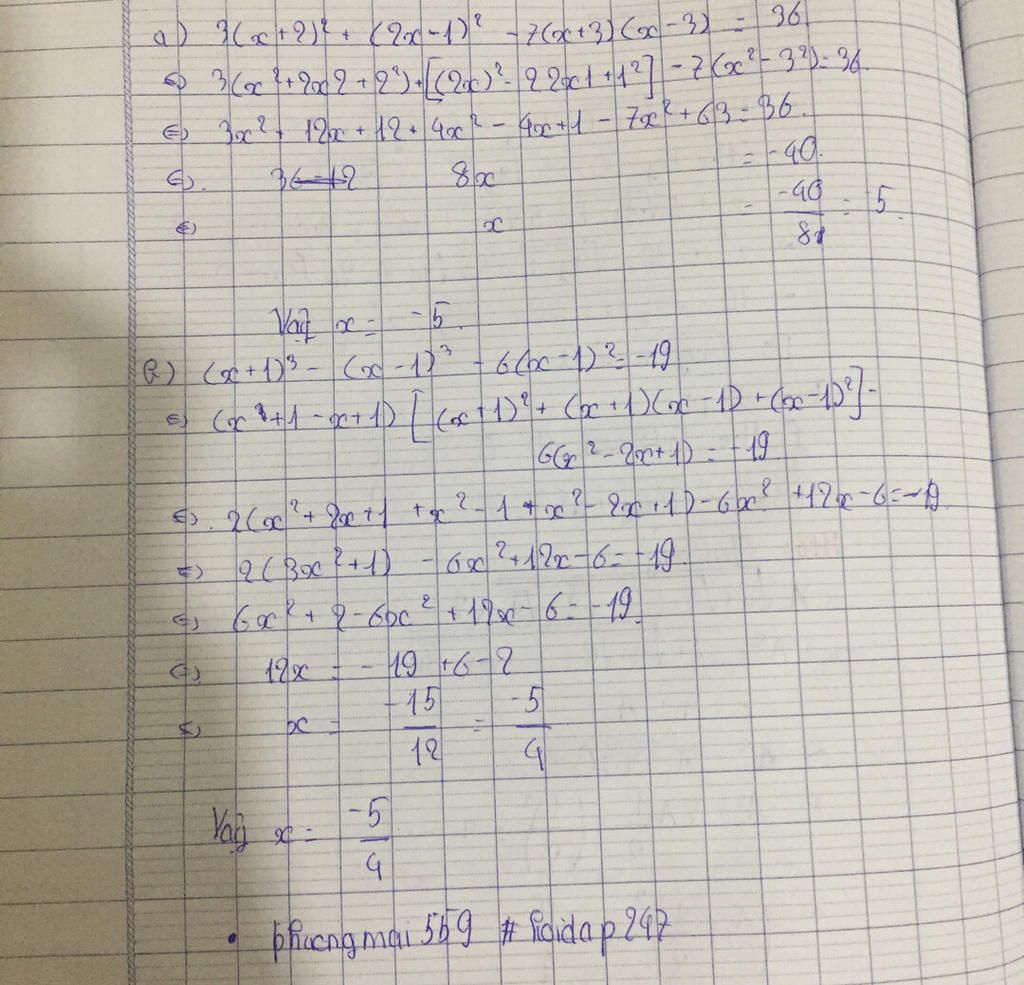 a) 3(x+2)² + (2x-1)² - 7(x+3)(x-3) = 36
⇔ 3(x²+2x2+2²)+[(2x)²-22x1+1²] - 7(x²-3²)=36
⇔ 3x²+ 12x+12+4x²-4x+1-7x²+63=36.
⇔. 8x = -40.
⇔ x = -40/8 = 5.
Vậy x = -5.
b) (x+1)³ - (x-1)³ - 6(x-1)²=-19
⇔ (x+1-x+1)[(x+1)²+(x+1)(x-1)+(x-1)²]-
6(x²-2x+1) = -19
⇔. 2(x²+2x+1+x²-1+x²-2x+1)-6x²+12x-6=-19
⇔ 2(3x²+1) - 6x²+12x-6=-19
⇔ 6x²+2-6x²+12x-6=-19.
⇔ 12x = -19+6-2
⇔ x = -15/12 = -5/4
Vậy x = -5/4
• phuongmai559 # hoidap247